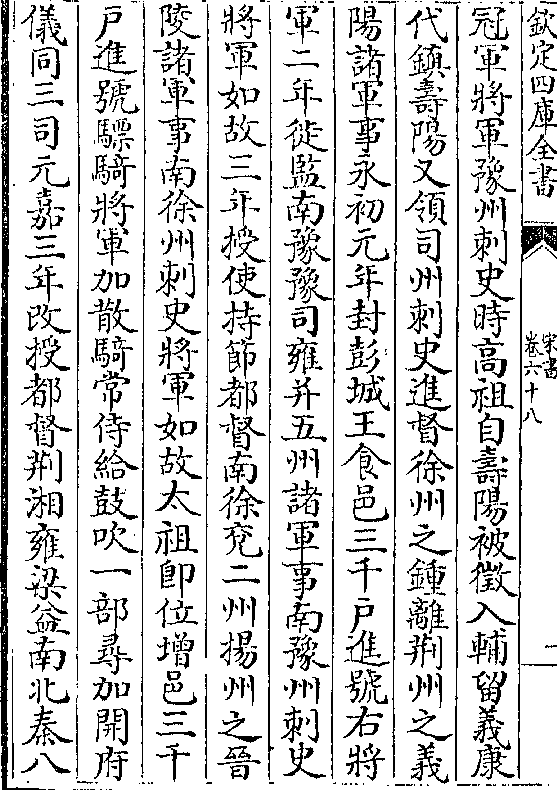 欽定四庫全書
宋書
卷六十八
一
冠軍將軍豫州刺史時高祖自壽陽被徵入輔留義康
代鎮壽陽又領司州刺史進督徐州之鍾離荆州之義
陽諸軍事永初元年封彭城王食邑三千戸進號右將
軍二年徙監南豫豫司雍并五州諸軍事南豫州刺史
將軍如故三年授使持節都督南徐兖二州揚州之晉
陵諸軍事南徐州刺史將軍如故太祖卽位增邑三千
戸進號驃騎將軍加散騎常侍給鼓吹一部尋加開府
儀同三司元嘉三年改授都督荆湘雍梁益南北秦八